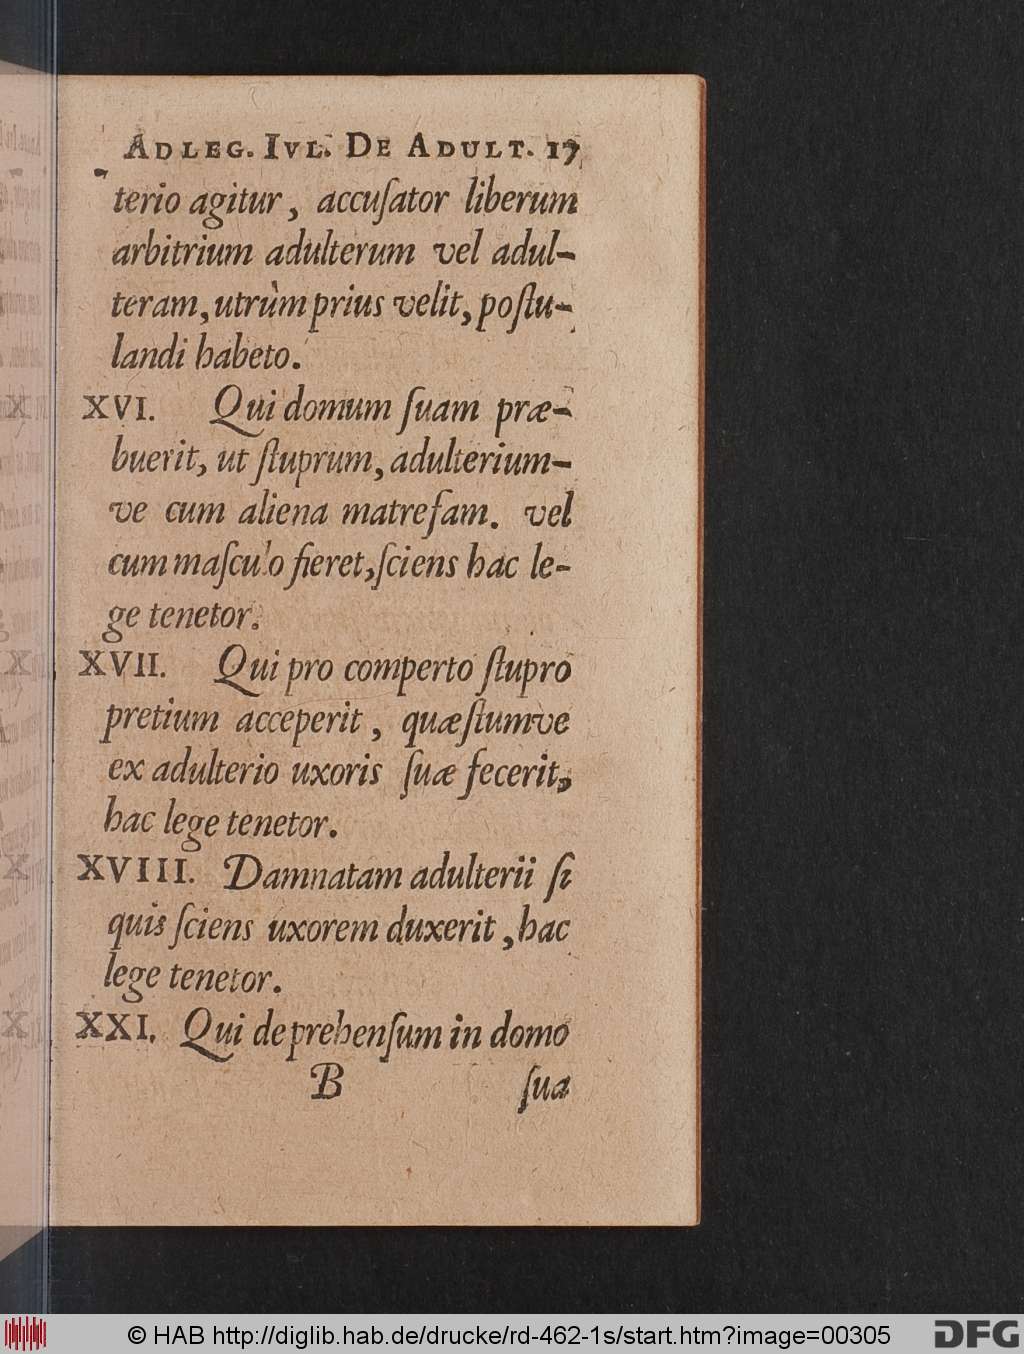 AD LEG. IVL. DE ADULT. 17
terio agitur, accuſator liberum
arbitrium adulterum vel adul-
teram, utrùm prius velit, poſtu-
landi habeto.
XVI. Qui domum ſuam præ-
buerit, ut ſtuprum, adulterium-
ve cum aliena matrefam. vel
cum maſculo fieret, ſciens hac le-
ge tenetor.
XVII. Qui pro comperto ſtupro
pretium acceperit, quæſtumve
ex adulterio uxoris ſuæ fecerit,
hac lege tenetor.
XVIII. Damnatam adulterii ſi
quis ſciens uxorem duxerit, hac
lege tenetor.
XXI. Qui deprehenſum in domo
B ſua
© HAB http://diglib.hab.de/drucke/rd-462-1s/start.htm?image=00305
DFG